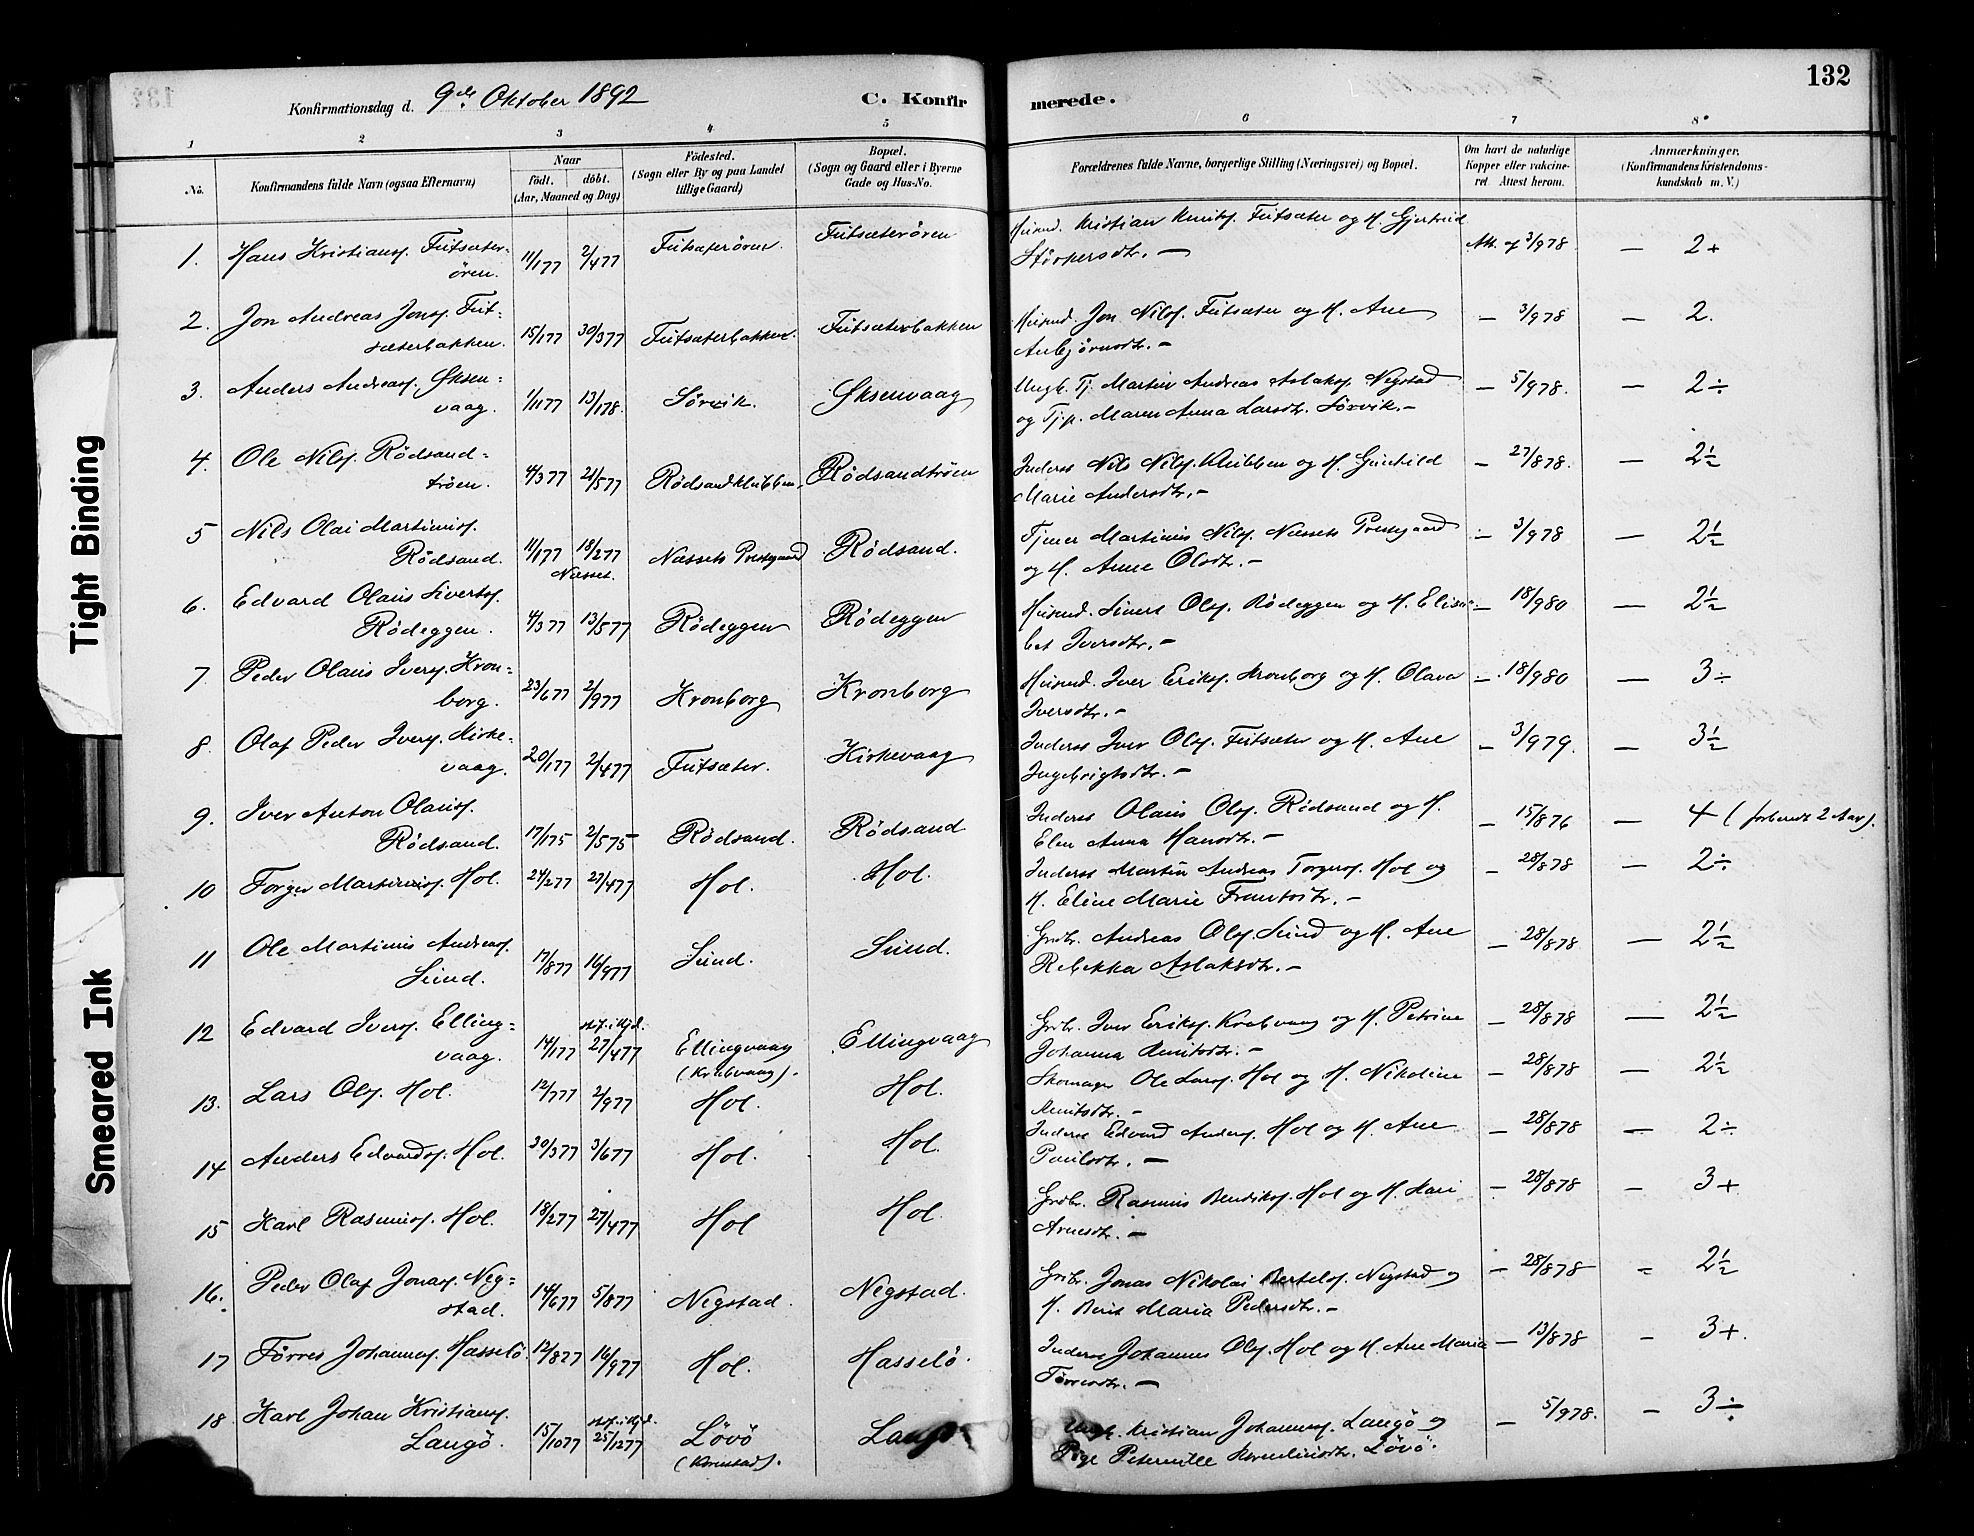 132
Konfirmationsdag d. 9de Oktober 1892
C. Konfirmerede.
1 2 3 4 5 6 7 8
No.
Konfirmandens fulde Navn (ogsaa Efternavn)
Naar
födt. döbt.
(Aar, Maaned og Dag)
Födested.
(Sogn eller By og paa Landet
tillige Gaard)
Bopæl.
(Sogn og Gaard eller i Byerne
Gade og Hus-No.
Forældrenes fulde Navne, borgerlige Stilling (Næringsvei) og Bopæl.
Om havt de naturlige
Kopper eller vakcine-
ret Attest herom.
Anmærkninger.
(Konfirmandens Kristendoms-
kundskab m. V.)
1. Hans Kristians. Futsæter- 11/1 77 2/4 77 Futsæterören Futsæterören Husmd. Kristian Futsæter og H. Gjertrud Att. af 3/9 78 — 2+
ören. Störkersdtr. —
2. Jon Andreas Jons. Fut- 15/1 77 30/3 77 Futsæterbakken. Futsæterbakken Husmd. Jon Nils. Futsæter og H. Ane — 3/9 78 — 2.
sæterbakken. Anbjörnsdtr. —
3. Anders Andreas. Öksen- 1/11 77 13/1 78. Sörvik. Öksenvaag Ungk. Tj. Martin Andreas Aslaks. Negstad — 5/9 78. — 2÷
vaag. og Tjp. Maren Anna Larsdtr. Sörvik. —
4. Ole Nils. Rödsand- 4/3 77 21/5 77 Rödsandklubben Rödsandtröen Inderst Nils Nils. Klubben og H. Gunhild — 27/8 78. — 2½
tröen. Marie Andersdtr. —
5 Nils Olai Martinus. 11/1 77 18/2 77 Næssets Prestegaard Rödsand. Tjener Martinus Nils. Næssets Prestegaard — 3/9 78 — 2½
Rödsand. Næsset. og H. Anne Olsdtr. —
6. Edvard Olaus Siverts. 4/3 77 13/5 77 Rödeggen Rödeggen Husmd. Sivert Ols. Rödeggen og H. Elisa- — 18/9 80 — 2½
Rödeggen. bet Iversdtr. —
7 Peder Olaus Ivers. Kron- 23/6 77 2/9 77 Kronborg Kronborg Husmd. Iver Eriks. Kronborg og H. Olava — 18/9 80 — 3÷
borg. Iversdtr. —
8. Olaf Peder Ivers. Kirke- 20/1 77 2/4 77 Futsæter. Kirkevaag Inderst Iver Ols. Futsæter og H. Ane — 3/9 79. — 3½
vaag. Ingebrigtsdtr. —
9. Iver Anton Olaus. 17/1 75 2/5 75 Rödsand. Rödsand Inderst Olaus Ols. Rödsand og H. — 15/8 76 — 4 (forberedt 2 Aar).
Rödsand. Elen Anna Hansdtr. —
10 Torger Martinus. Hol. 24/2 77 27/4 77 Hol. Hol. Inderst Martin Andreas Torgers. Hol og — 28/8 78 — 2÷
H. Eline Marie Frantsdtr. —
11 Ole Martinus Andreas. 17/8 77 16/9 77 Sund. Sund. Grdbr. Andreas Ols. Sund og H. Ane — 28/8 78 — 2½
Sund. Rebekka Aslaksdtr. —
12 Edvard Ivers. Elling- 14/1 77 27/4 77 Ellingvaag Ellingvaag Grdbr. Iver Eriks. Krabvaag og H. Petrine — 28/8 78 — 2½
vaag. (Krabvaag). Johanna Knutsdtr. —
13. Lars Ols. Hol. 12/7 77 2/9 77 Hol. Hol. Skomager Ole Lars. Hol og H. Nikoline — 28/8 78 — 2½
Knutsdtr. —
14 Anders Edvards. Hol. 30/3 77 3/6 77 Hol. Hol. Inderst Edvard Anders. Hol og H. Ane — 28/8 78 — 2÷
Paulsdtr. —
15 Karl Rasmus. Hol. 18/2 77 27/4 77 Hol Hol. Grdbr. Rasmus Bendiks. Hol og H. Kari — 28/8 78 — 3+
Arnesdtr. —
16. Peder Olaf Jonas. Neg- 14/6 77 5/8 77 Negstad. Negstad. Grdbr. Jonas Nikolai Bertels. Negstad og — 28/8 78 — 2½
stad. H. Berit Maria Pedersdtr. —
17 Törres Johannes. Hasselö. 12/8 77 16/9 77 Hol. Hasselö. Inderst Johannes Ols. Hol og H. Ane Maria — 13/8 78 — 3+.
Törresdtr. —
18. Karl Johan Kristians. 15/10 77 25/12 77 Lövö Langö Ungk. Kristian Johannes. Langö og — 5/9 78. — 3÷
Langö. (Kornstad). Pige Peternille Korneliusdtr. Lövö.
Tight Binding
Smeared Ink